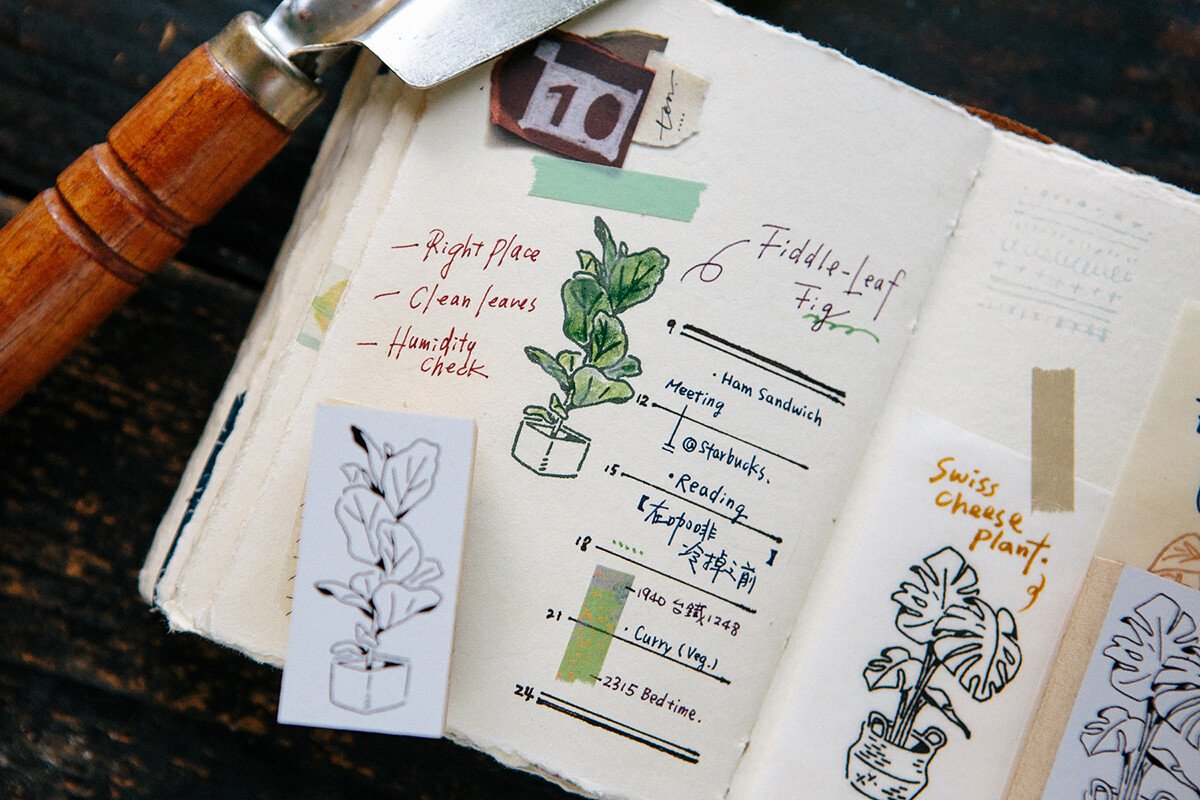 10
ten
Right Place
Clean leaves
Humidity
Check
Fiddle-Leaf
Fig
9
• Ham Sandwich
Meeting
12
@Starbucks.
15
• Reading
【在咖啡
冷掉之前】
18
1940 台鐵1248
21
• Curry (Veg.)
2315 Bedtime.
24
Swiss
cheese
plant.